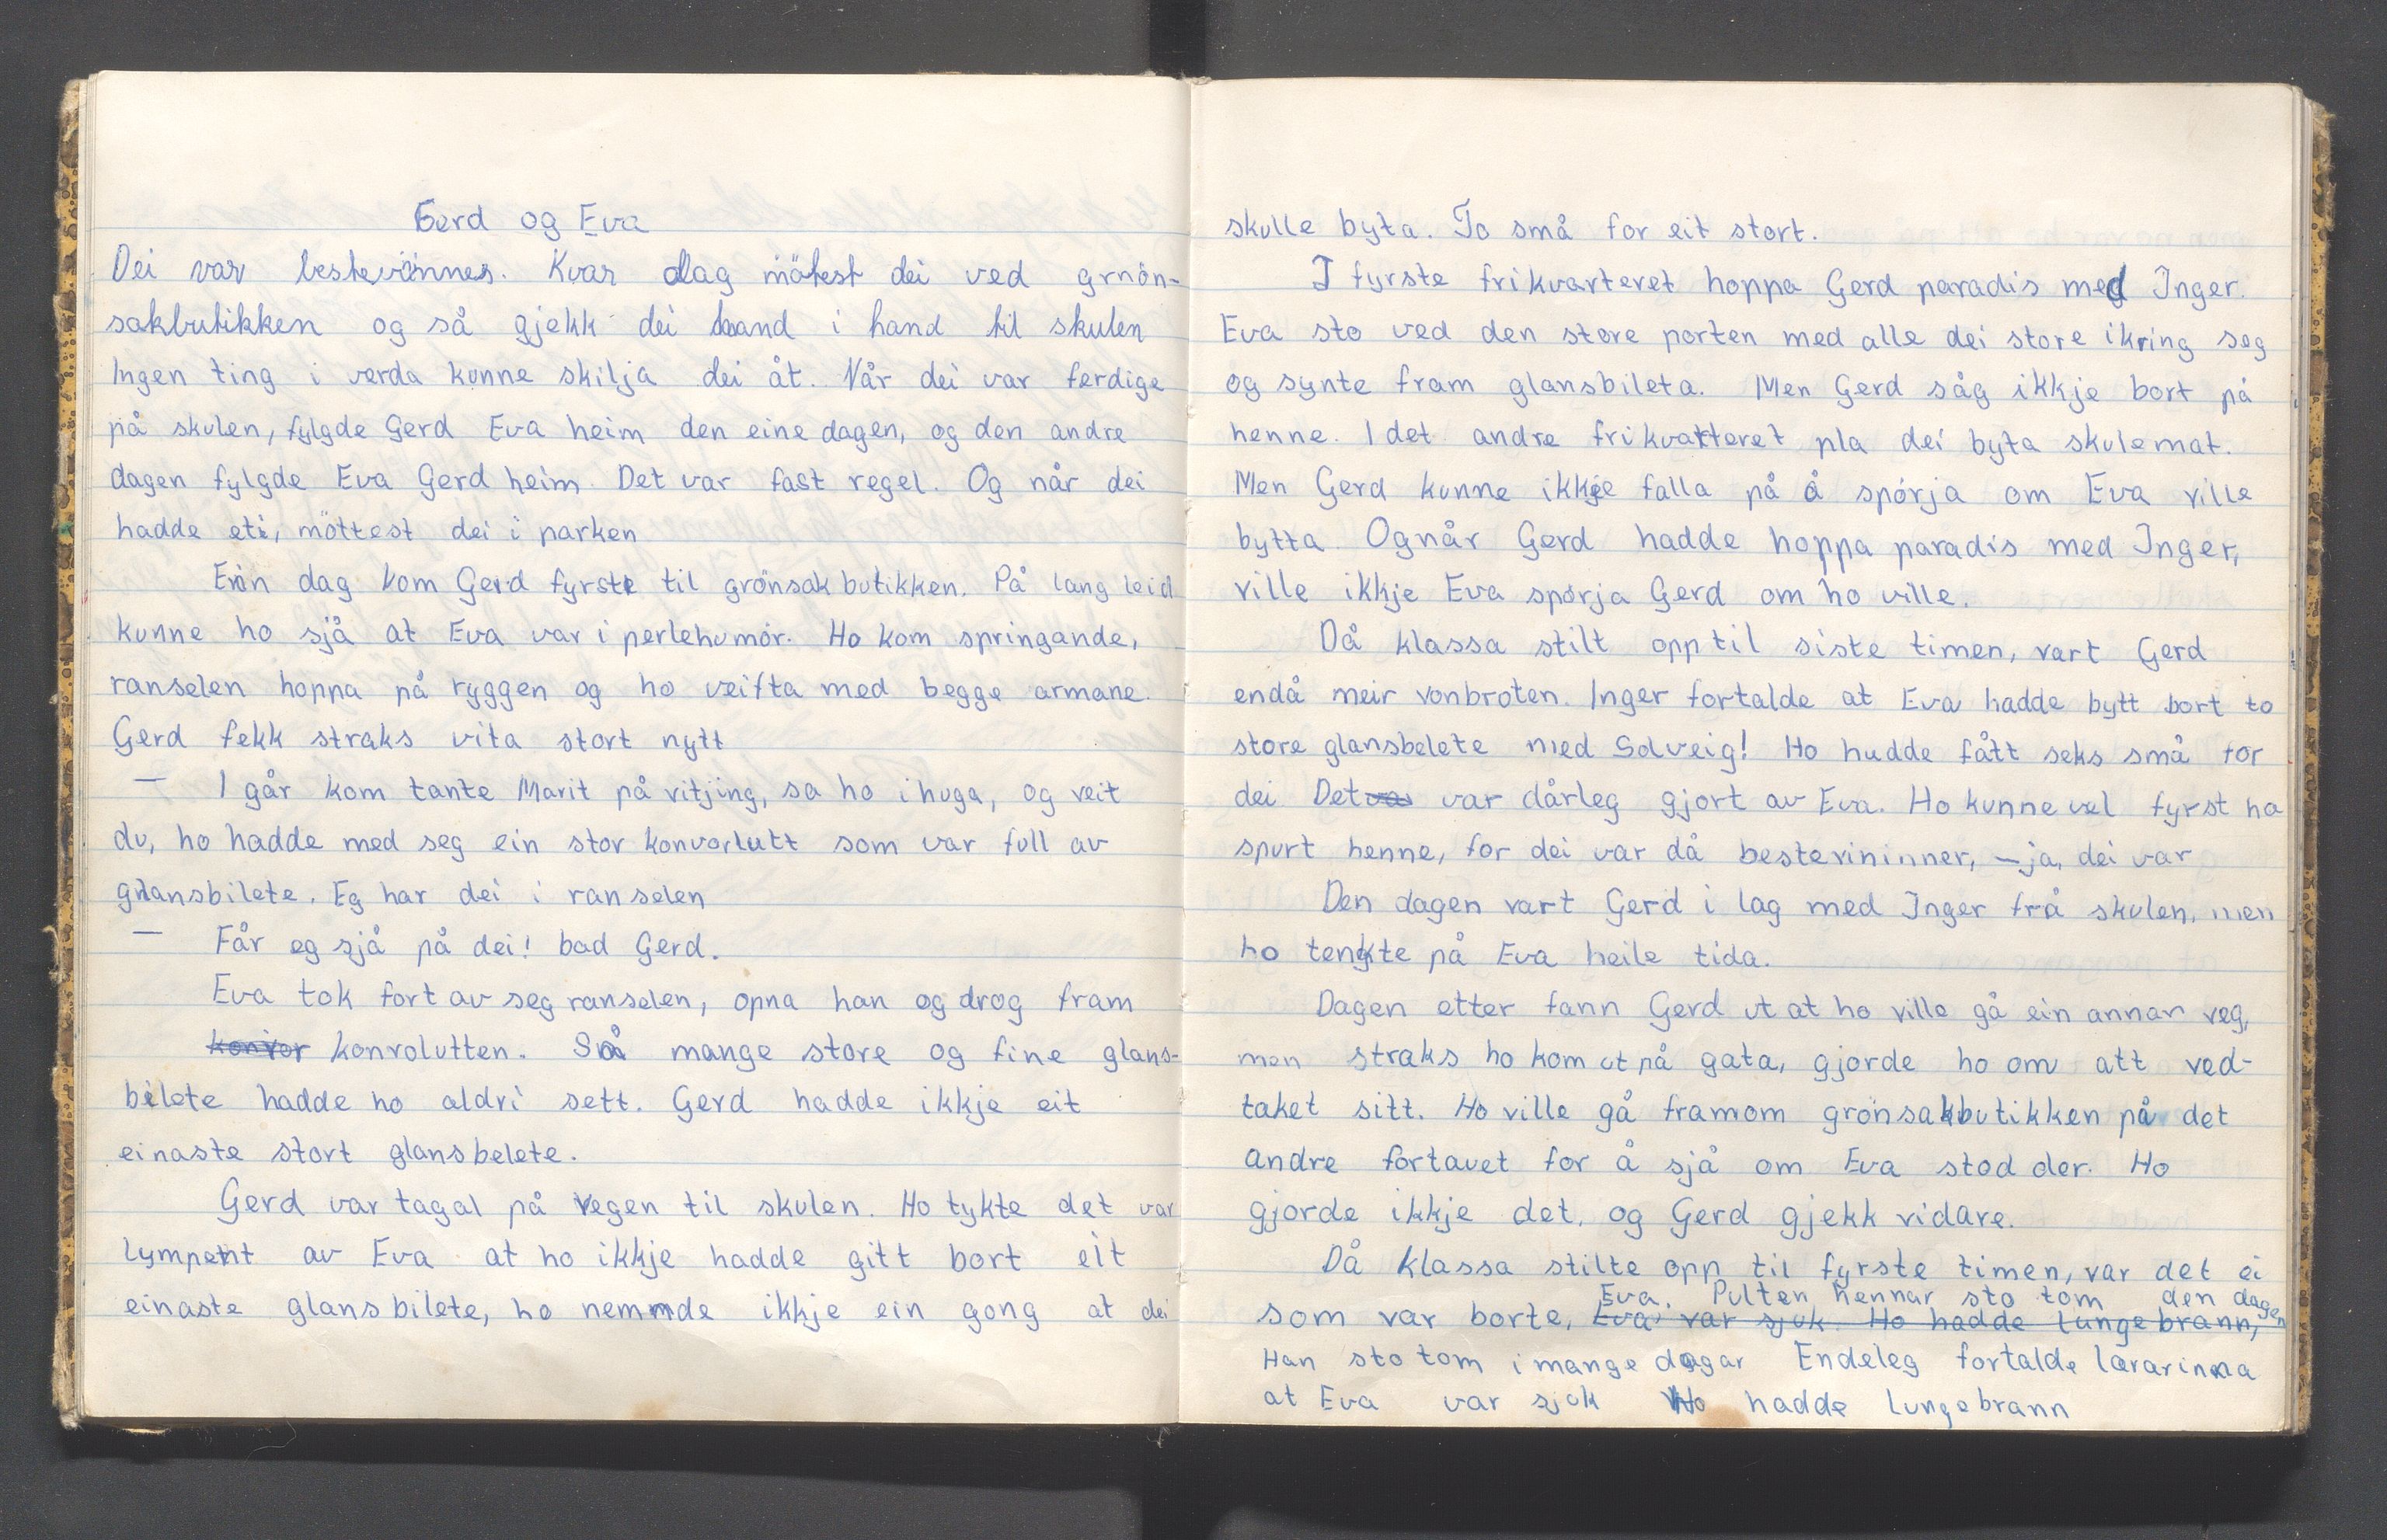 Gerd og Eva
Dei var bestevinner. Kvar dag mötest dei ved grnön-
sakbutikken og så gjekk dei hand i hand til skulen
Ingen ting i verda kunne skilja dei åt. Når dei var ferdige
på skulen, fylgde Gerd Eva heim den eine dagen, og den andre
dagen fylgde Eva Gerd heim. Det var fast regel. Og når dei
hadde eti, möttest dei i parken
Ein dag kom Gerd fyrste til grönsak butikken. På lang leid
kunne ho sjå at Eva var i perlehumör. Ho kom springande,
ranselen hoppa på ryggen og ho veifta med begge armane.
Gerd fekk straks vita stort nytt
— I går kom tante Marit på vitjing, sa ho ihuga, og veit
du, ho hadde med seg ein stor konvorlutt som var full av
glansbilete. Eg har dei i ranselen
— Får eg sjå på dei! bad Gerd.
Eva tok fort av seg ranselen, opna han og drog fram
konvor konvolutten. Så mange store og fine glans-
bilete hadde ho aldri sett. Gerd hadde ikkje eit
einaste stort glansbelete.
Gerd var tagal på vegen til skulen. Ho tykte det var
lympent av Eva at ho ikkje hadde gitt bort eit
einaste glansbilete, ho nemnde ikkje ein gong at dei
skulle byta. To små for eit stort.
I fyrste frikvarteret hoppa Gerd paradis med Inger.
Eva sto ved den store porten med alle dei store ikring seg
og synte fram glansbileta. Men Gerd såg ikkje bort på
henne. I det andre frikvarteret pla dei byta skulemat.
Men Gerd kunne ikkje falla på å spórja om Eva ville
bytta. Ognår Gerd hadde hoppa paradis med Inger,
ville ikkje Eva spórja Gerd om ho ville.
Då klassa stilt opp til siste timen, vart Gerd
endå meir vonbroten. Inger fortalde at Eva hadde bytt bort to
store glansbelete med Solveig! Ho hadde fått seks små for
dei Det va var dårleg gjort av Eva. Ho kunne vel fyrst ha
spurt henne, for dei var då bestevininner, – ja, dei var
Den dagen vart Gerd i lag med Inger frå skulen, men
ho tenkte på Eva heile tida.
Dagen etter fann Gerd ut at ho ville gå ein annan veg,
men straks ho kom ut på gata, gjorde ho om att ved-
taket sitt. Ho ville gå framom grönsakbutikken på det
andre fortauet for å sjå om Eva stod der. Ho
gjorde ikkje det, og Gerd gjekk vidare.
Då klassa stilte opp til fyrste timen, var det ei
Eva. Pulten hennar sto tom den dagen
som var borte, Eva var sjuk. Ho hadde lungebrann,
Han sto tom i mange dagar Endeleg fortalde lærarinna
at Eva var sjuk Ho hadde lungebrann